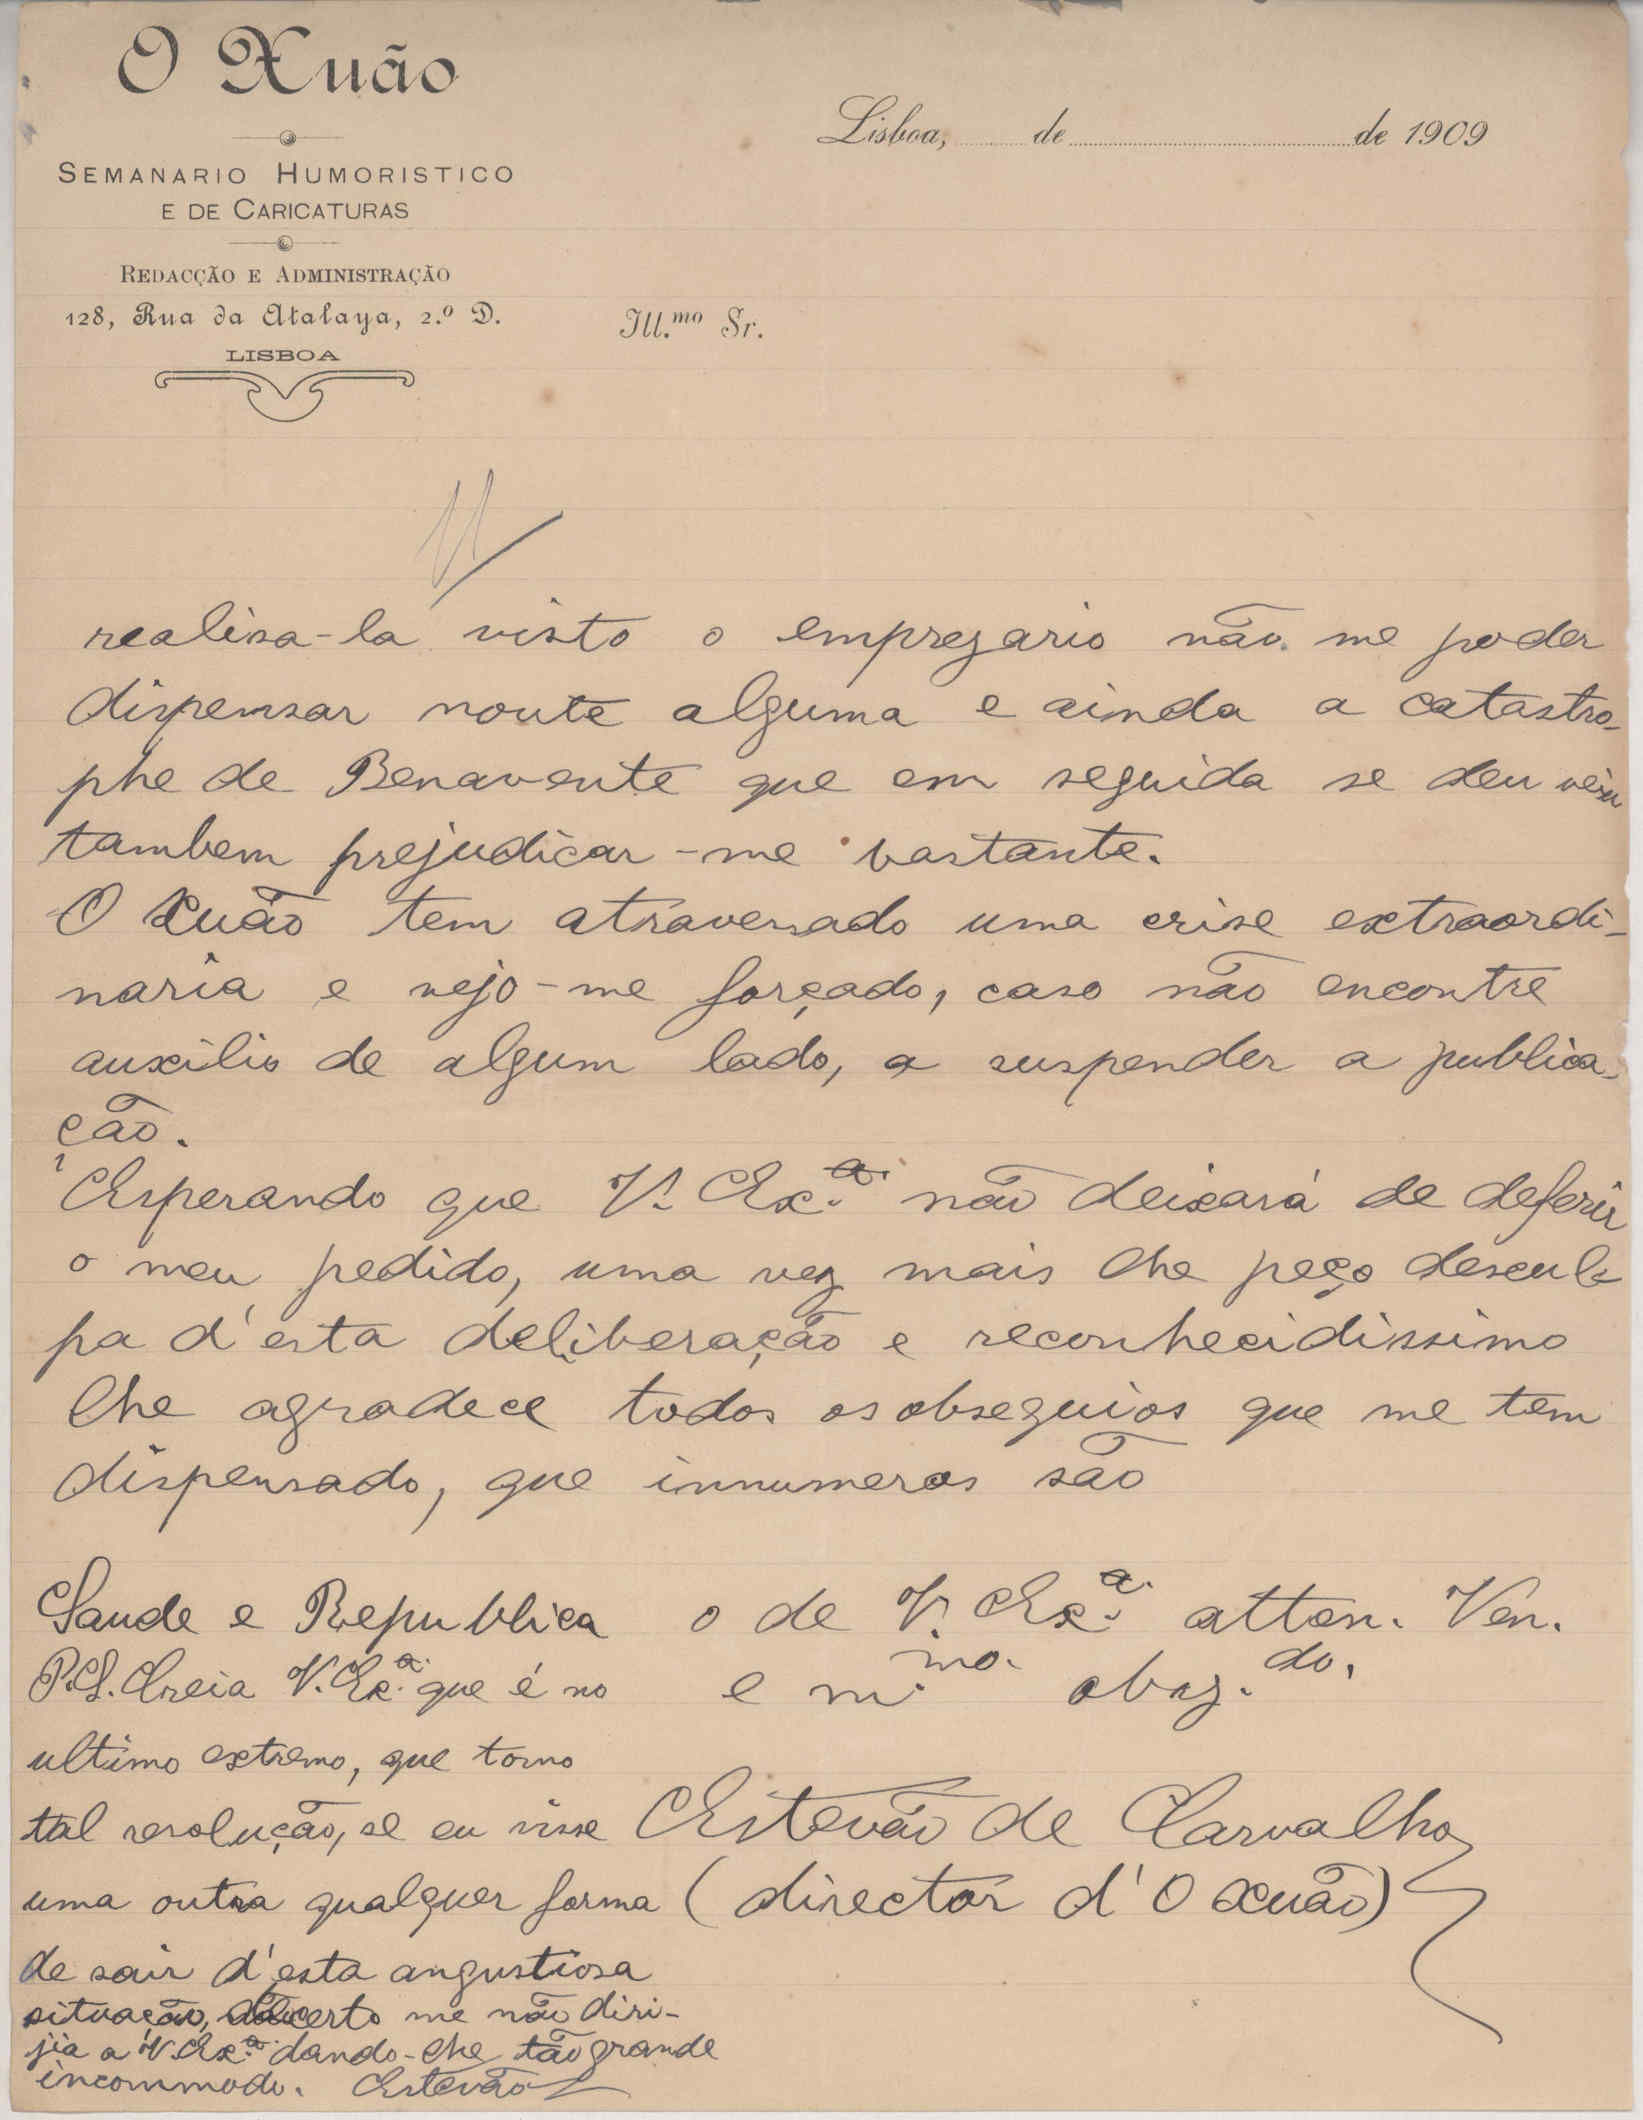 O Xuão
SEMANARIO HUMORISTICO
E DE CARICATURAS
REDACÇÃO E ADMINISTRAÇÃO
128, Rua da Atalaya, 2.º D.
LISBOA
Lisboa, de de 1909
Ill.mo Sr.
realisa-la visto o emprezario não me poder
dispensar noute alguma e ainda a catastro-
phe de Benavente que em seguida se deu veiu
tambem prejudicar-me bastante.
O Xuão tem atravessado uma crise extraordi-
naria e vejo-me forçado, caso não encontre
auxilio de algum lado, a suspender a publica-
ção.
Esperando que V. Ex.ª não deixará de deferir
o meu pedido, uma vez mais lhe peço descul-
pa d'esta deliberação e reconhecidissimo
lhe agradece todos os obsequios que me tem
dispensado, que innumeros são
Saude e Republica
o de V. Ex.ª atten. Ven.
e m.mo obrg.do.
Estevão de Carvalho
(director d'O Xuão)
P.S. Creia V. Ex.ª que é no
ultimo extremo, que tomo
tal resolução, se eu visse
uma outra qualquer forma
de sair d'esta angustiosa
situação, certo me não diri-
jia a V. Ex.ª dando-lhe tão grande
incommodo. Estevão